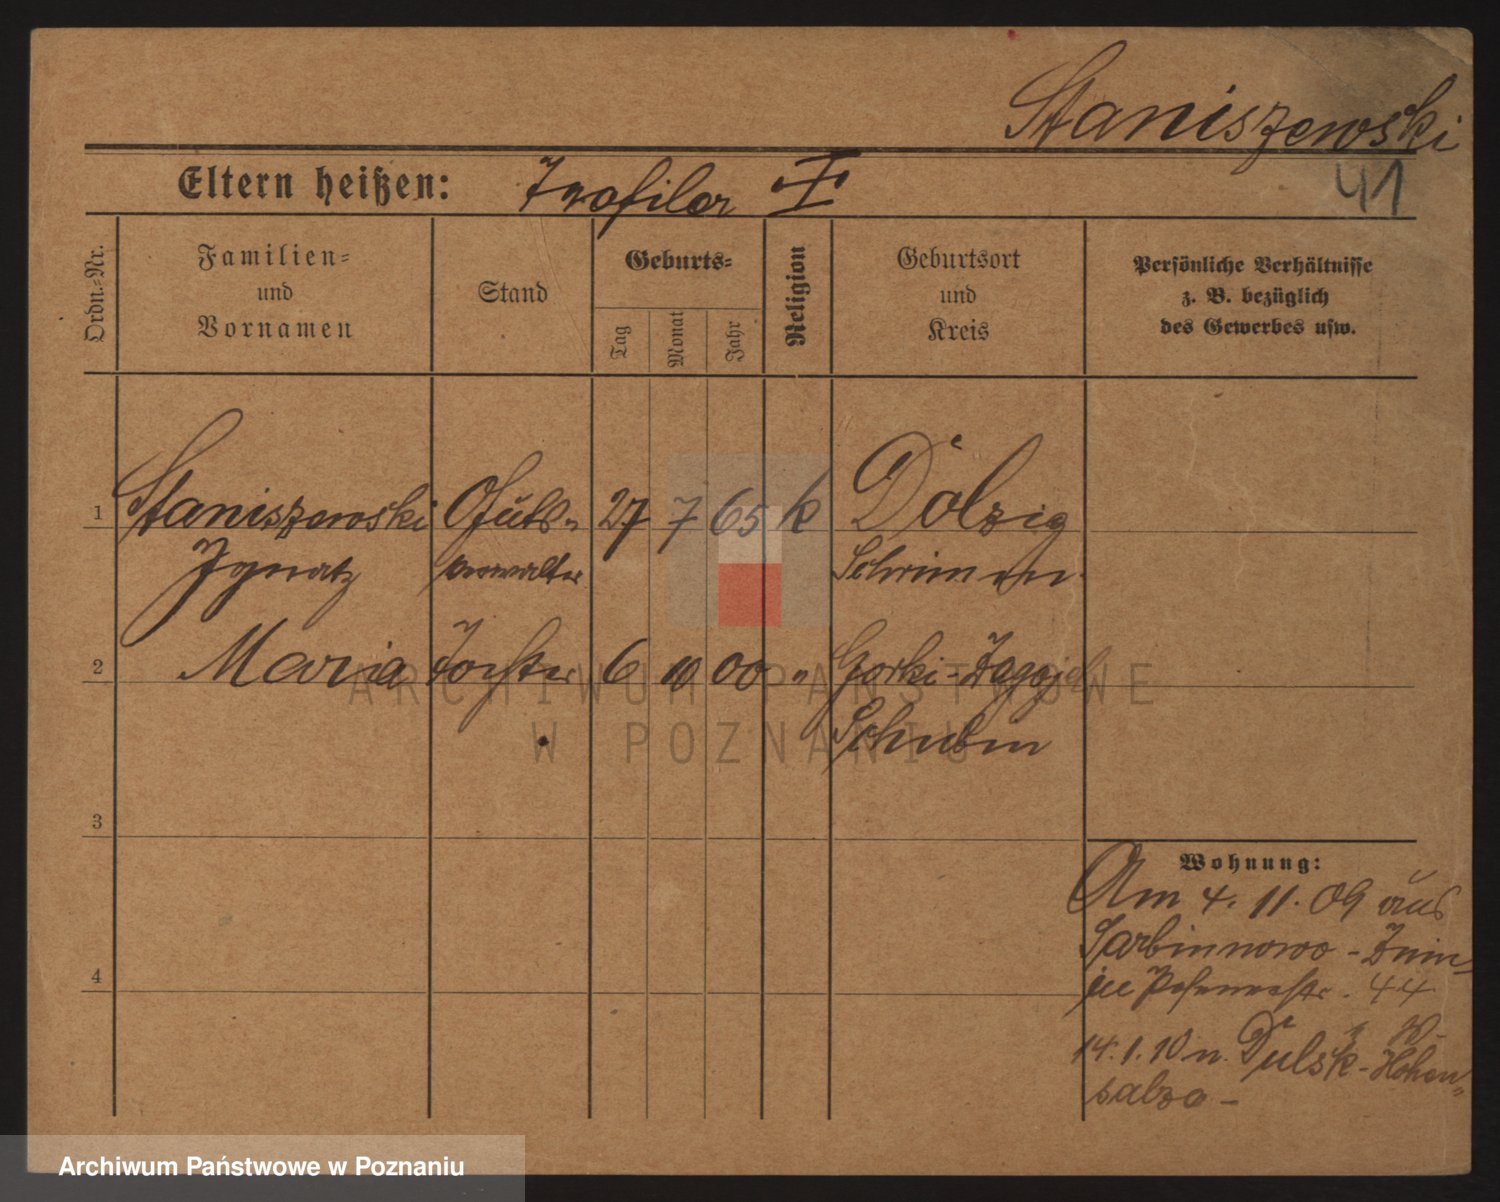 Staniszewski
41
Eltern heißen:
Ordn.-Nr.
Familien-
und
Vornamen
Stand
Geburts-
Tag
Monat
Jahr
Religion
Geburtsort
und
Kreis
Persönliche Verhältnisse
z. B. bezüglich
des Gewerbes usw.
1 Staniszewski Guts- 27 7 65 k Dolzig
Ignatz verwalter Schrimm
2 Maria Tochter 6 10 00 " Gorki-Zagaj
Schubin
3
4
Wohnung:
Am 4. 11. 09 aus
Sarbinnowo - Znin
in 44
14. 1. 10 n. Dulsk - Hohen-
salza -
ARCHIWUM PAŃSTWOWE
W POZNANIU
Archiwum Państwowe w Poznaniu